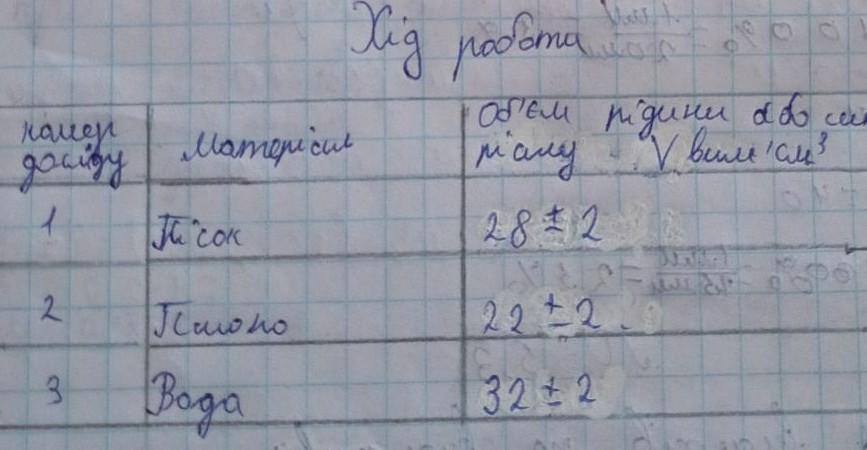 Хід роботи
номер
досліду
Матеріал
Об'єм рідини або
V вим'см³
1
Пісок
28 ± 2
2
Пшоно
22 ± 2.
3
Вода
32 ± 2